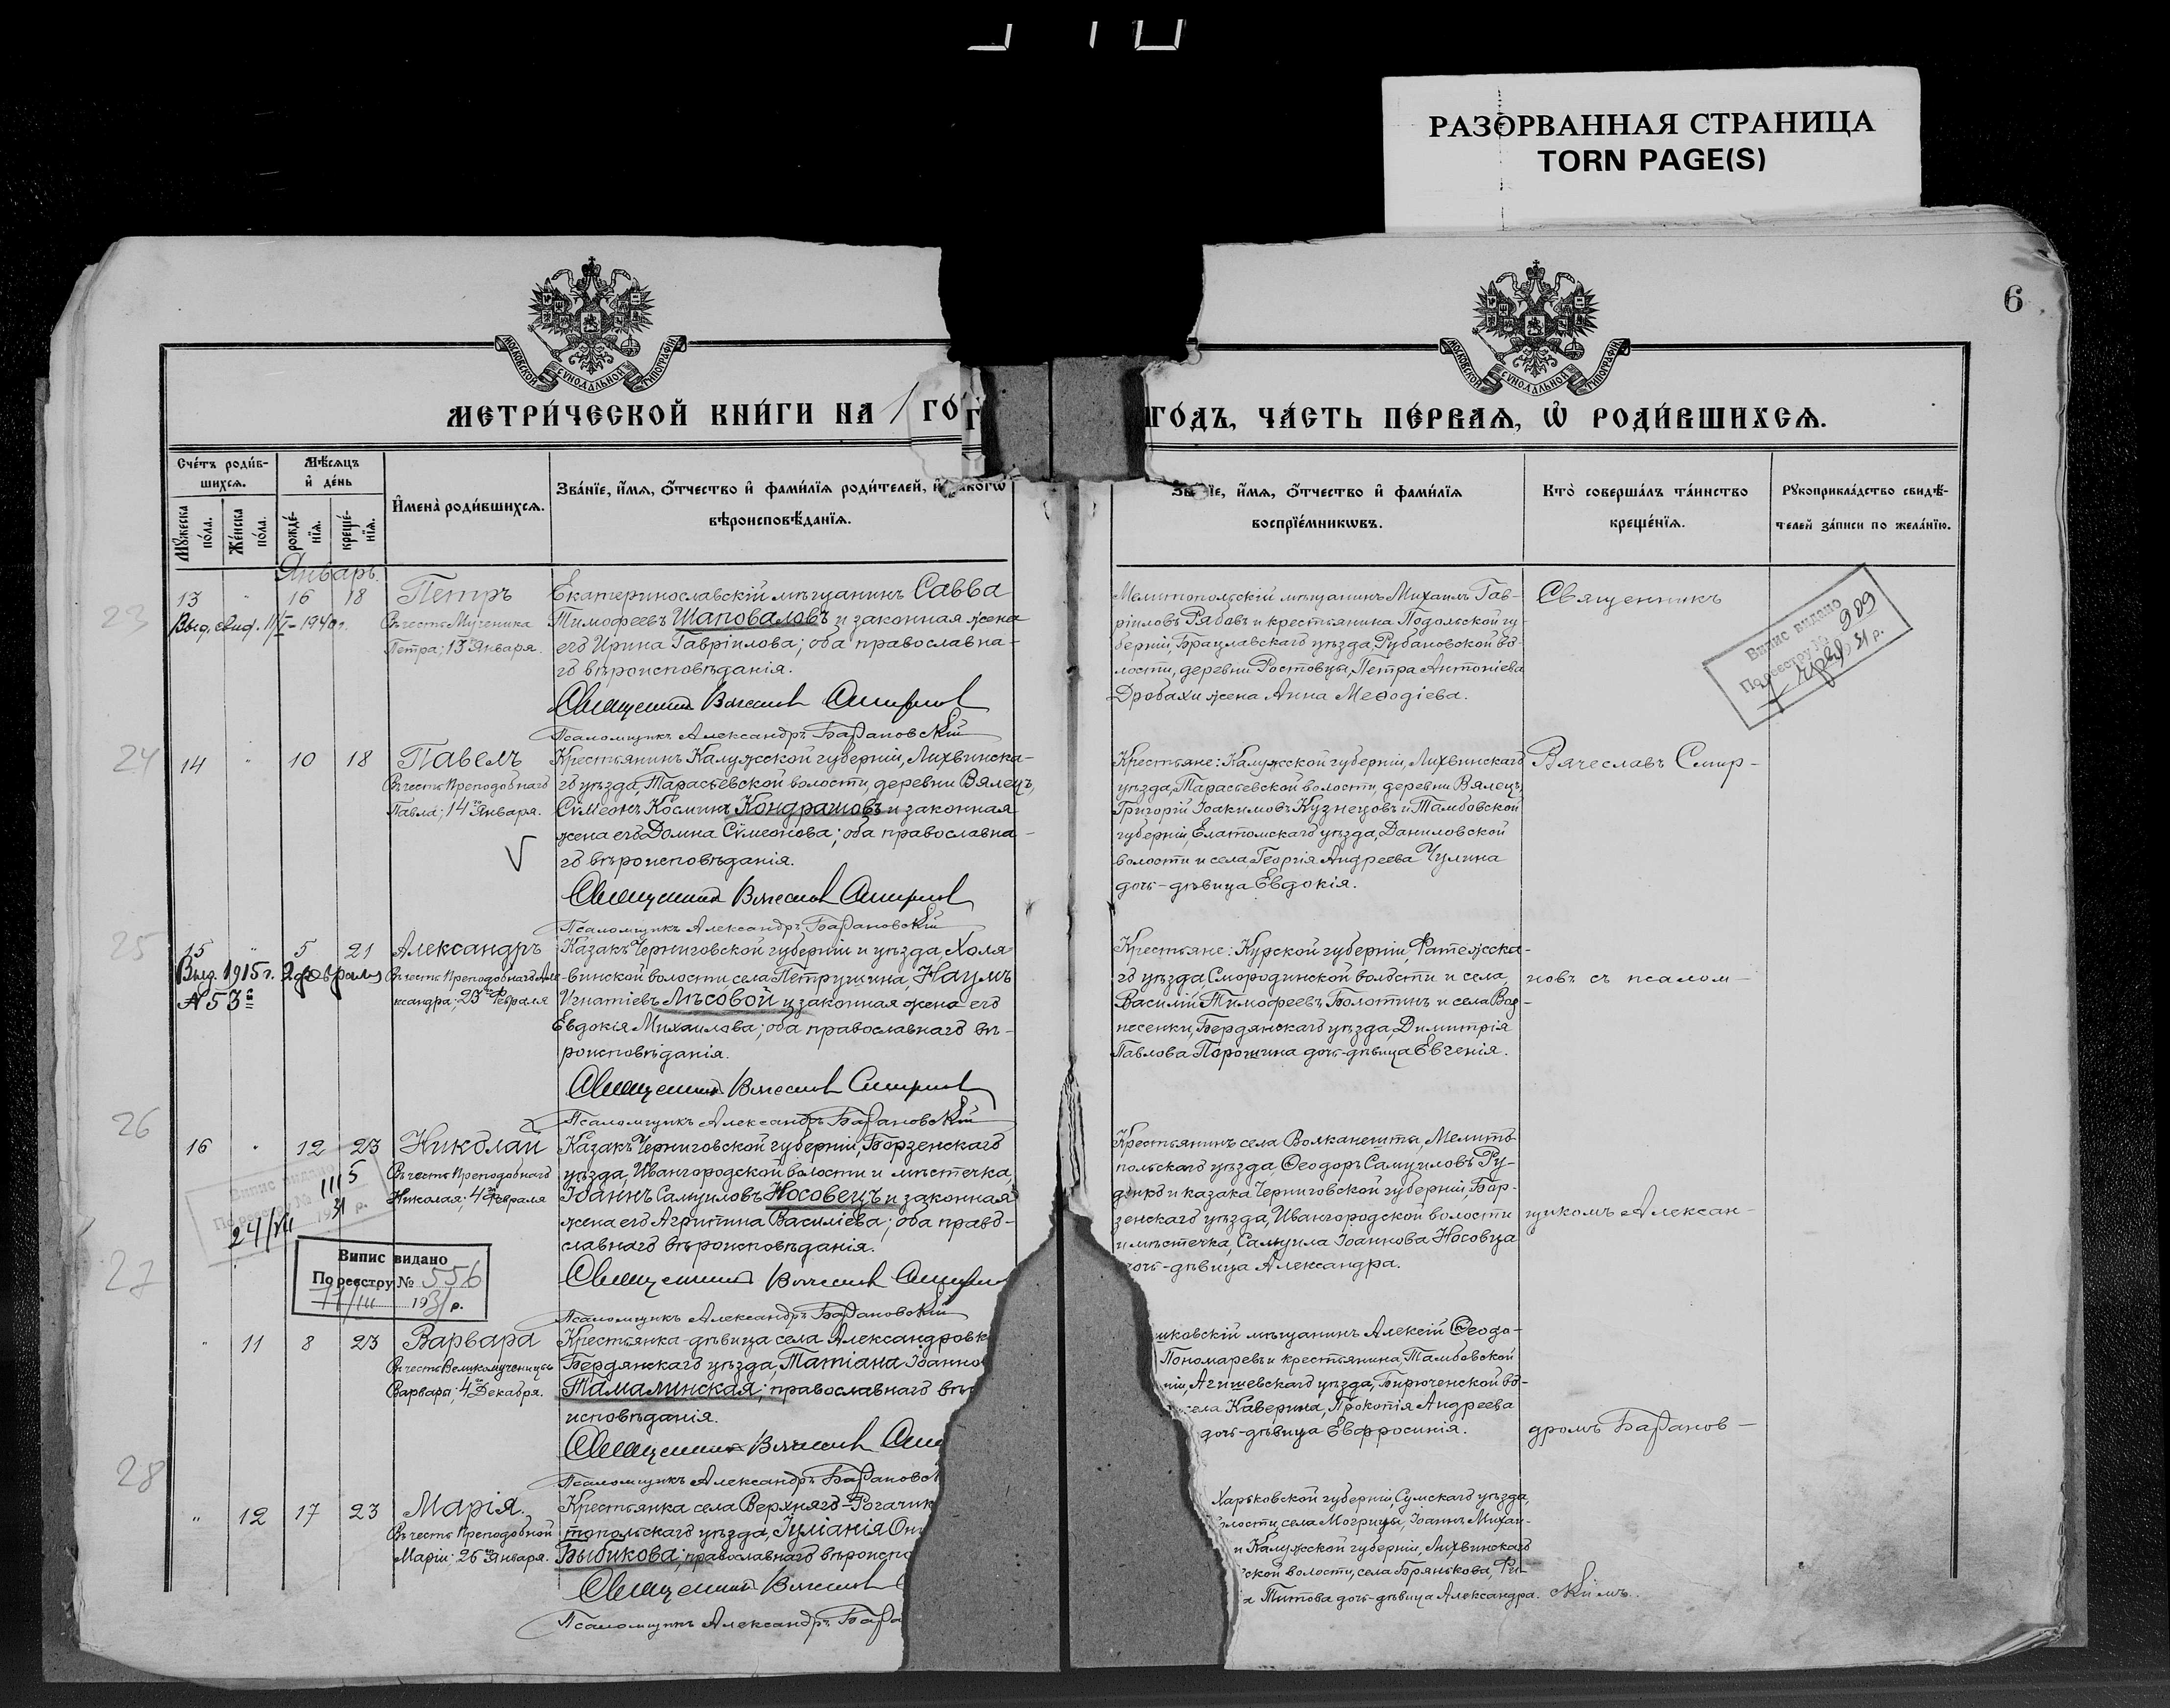 РАЗОРВАННАЯ СТРАНИЦА
TORN PAGE(S)
6
МОСКОВСКОЙ СѴНОДАЛЬНОЙ ТИПОГРАФІИ
МОСКОВСКОЙ СѴНОДАЛЬНОЙ ТИПОГРАФІИ
МЕТРИ́ЧЕСКОЙ КНИ́ГИ НА 1 ГО́
ГО́ДЪ, ЧА́СТЬ ПЕ́РВАѦ, Ѡ҆ РОДИ́ВШИХСѦ.
Сче́тъ роди́в-
шихсѧ.
Мꙋ́жеска по́ла.
Же́нска по́ла.
Мѣ́сѧцъ
и҆ де́нь
рожде́-
нїѧ.
креще́-
нїѧ.
И҆мена̀ роди́вшихсѧ.
Зва́нїе, и҆́мѧ, ѻ҆́тчество и҆ фами́лїѧ роди́телей, и҆ како́гѡ
вѣроисповѣ́данїѧ.
Зва́нїе, и҆́мѧ, ѻ҆́тчество и҆ фами́лїѧ
воспрїе́мникѡвъ.
Кто̀ соверша́лъ та́инство
креще́нїѧ.
Рꙋкоприкла́дство свидѣ́-
телей за́писи по жела́нїю.
Январь.
23
13 " 16 18
Выд. свид. 11/I - 1940 г.
Петръ
Въ честь Мученика
Петра; 13го Января.
Екатеринославскій мѣщанинъ Савва
Тимофеевъ Шаповаловъ и законная жена
его Ирина Гавріилова; оба православна-
го вѣроисповѣданія.
Священникъ Вячеславъ Смирновъ
Псаломщикъ Александръ Барановскій
Мелитопольскій мѣщанинъ Михаилъ Гав-
ріиловъ Рябовъ и крестьянина Подольской гу-
берніи, Брацлавскаго уѣзда, Рубановской во-
лости, деревни Ростовцы, Петра Антоніева
Дробахи жена Анна Меѳодіева.
Священникъ
Випис видано
По реестру № 989
31 р.
24
14 " 10 18
Павелъ
Въ честь Преподобнаго
Павла; 14го Января.
Крестьянинъ Калужской губерніи, Лихвинска-
го уѣзда, Тарасьевской волости, деревни Вялецъ,
Сѵмеонъ Косминъ Кондрашовъ и законная
жена его Домна Сѵмеонова; оба православна-
го вѣроисповѣданія.
Священникъ Вячеславъ Смирновъ
Псаломщикъ Александръ Барановскій
Крестьяне: Калужской губерніи, Лихвинскаго
уѣзда, Тарасьевской волости, деревни Вялецъ,
Григорій Іоакимовъ Кузнецовъ и Тамбовской
губерніи, Елатомскаго уѣзда, Даниловской
волости и села, Георгія Андреева Чулина
дочь-дѣвица Евдокія.
Вячеславъ Смир-
25
15 " 5 21
Выд. 1915 г. 2 февраля
№ 53
Александръ
Въ честь Преподобнаго Але-
ксандра; 23го Февраля
Казакъ Черниговской губерніи и уѣзда, Холя-
винской волости, села Петрушина, Наумъ
Игнатіевъ Лѣсовой и законная жена его
Евдокія Михаилова; оба православнаго вѣ-
роисповѣданія.
Священникъ Вячеславъ Смирновъ
Псаломщикъ Александръ Барановскій
Крестьяне: Курской губерніи, Фатежска-
го уѣзда, Смородинской волости и села,
Василій Тимофеевъ Болотинъ и села Воз-
несенки, Бердянскаго уѣзда, Димитрія
Павлова Порошина дочь-дѣвица Евгенія.
новъ съ псалом-
26
16 " 12 23
Николай
Въ честь Преподобнаго
Николая; 4го Февраля
Випис видано
По реестру № 1115
24/VII 1931 р.
Казакъ Черниговской губерніи, Борзенскаго
уѣзда, Ивангородской волости и мѣстечка,
Іоаннъ Самуиловъ Носовецъ и законная
жена его Агрипина Василіева; оба право-
славнаго вѣроисповѣданія.
Священникъ Вячеславъ Смирно
Псаломщикъ Александръ Барановскій
Крестьянинъ села Волканешта, Мелито-
польскаго уѣзда, Ѳеодоръ Самуиловъ Ру-
денко и казака Черниговской губерніи, Бор-
зенскаго уѣзда, Ивангородской волости
и мѣстечка, Самуила Іоаннова Носовца
дочь-дѣвица Александра.
щикомъ Алексан-
27
Випис видано
По реестру № 556
11/III 1931 р.
" 11 8 23
Варвара
Въ честь Великомученицы
Варвары; 4го Декабря.
Крестьянка-дѣвица села Александровк
Бердянскаго уѣзда, Татіана Іоанно
Тамалинская; православнаго вѣр
исповѣданія.
Священникъ Вячеславъ Сми
Псаломщикъ Александръ Барановск
шковскій мѣщанинъ Алексій Ѳеодо-
Пономаревъ и крестьянина, Тамбовской
ніи, Агишевскаго уѣзда, Бирюченской во-
села Каверина, Прокопія Андреева
дочь-дѣвица Евфросинія.
дромъ Баранов-
28
" 12 17 23
Марія.
Въ честь Преподобной
Маріи; 26го Января.
Крестьянка села Верхняго-Рогачик
топольскаго уѣзда, Іуліанія Они
Быбикова; православнаго вѣроиспо
Священникъ Вячеславъ
Псаломщикъ Александръ Бара
Харьковской губерніи, Сумскаго уѣзда,
олости, села Могрицы, Іоаннъ Михаи-
и Калужской губерніи, Лихвинскаго
ской волости, села Брянькова, Фи-
а Титова дочь-дѣвица Александра.
скимъ.